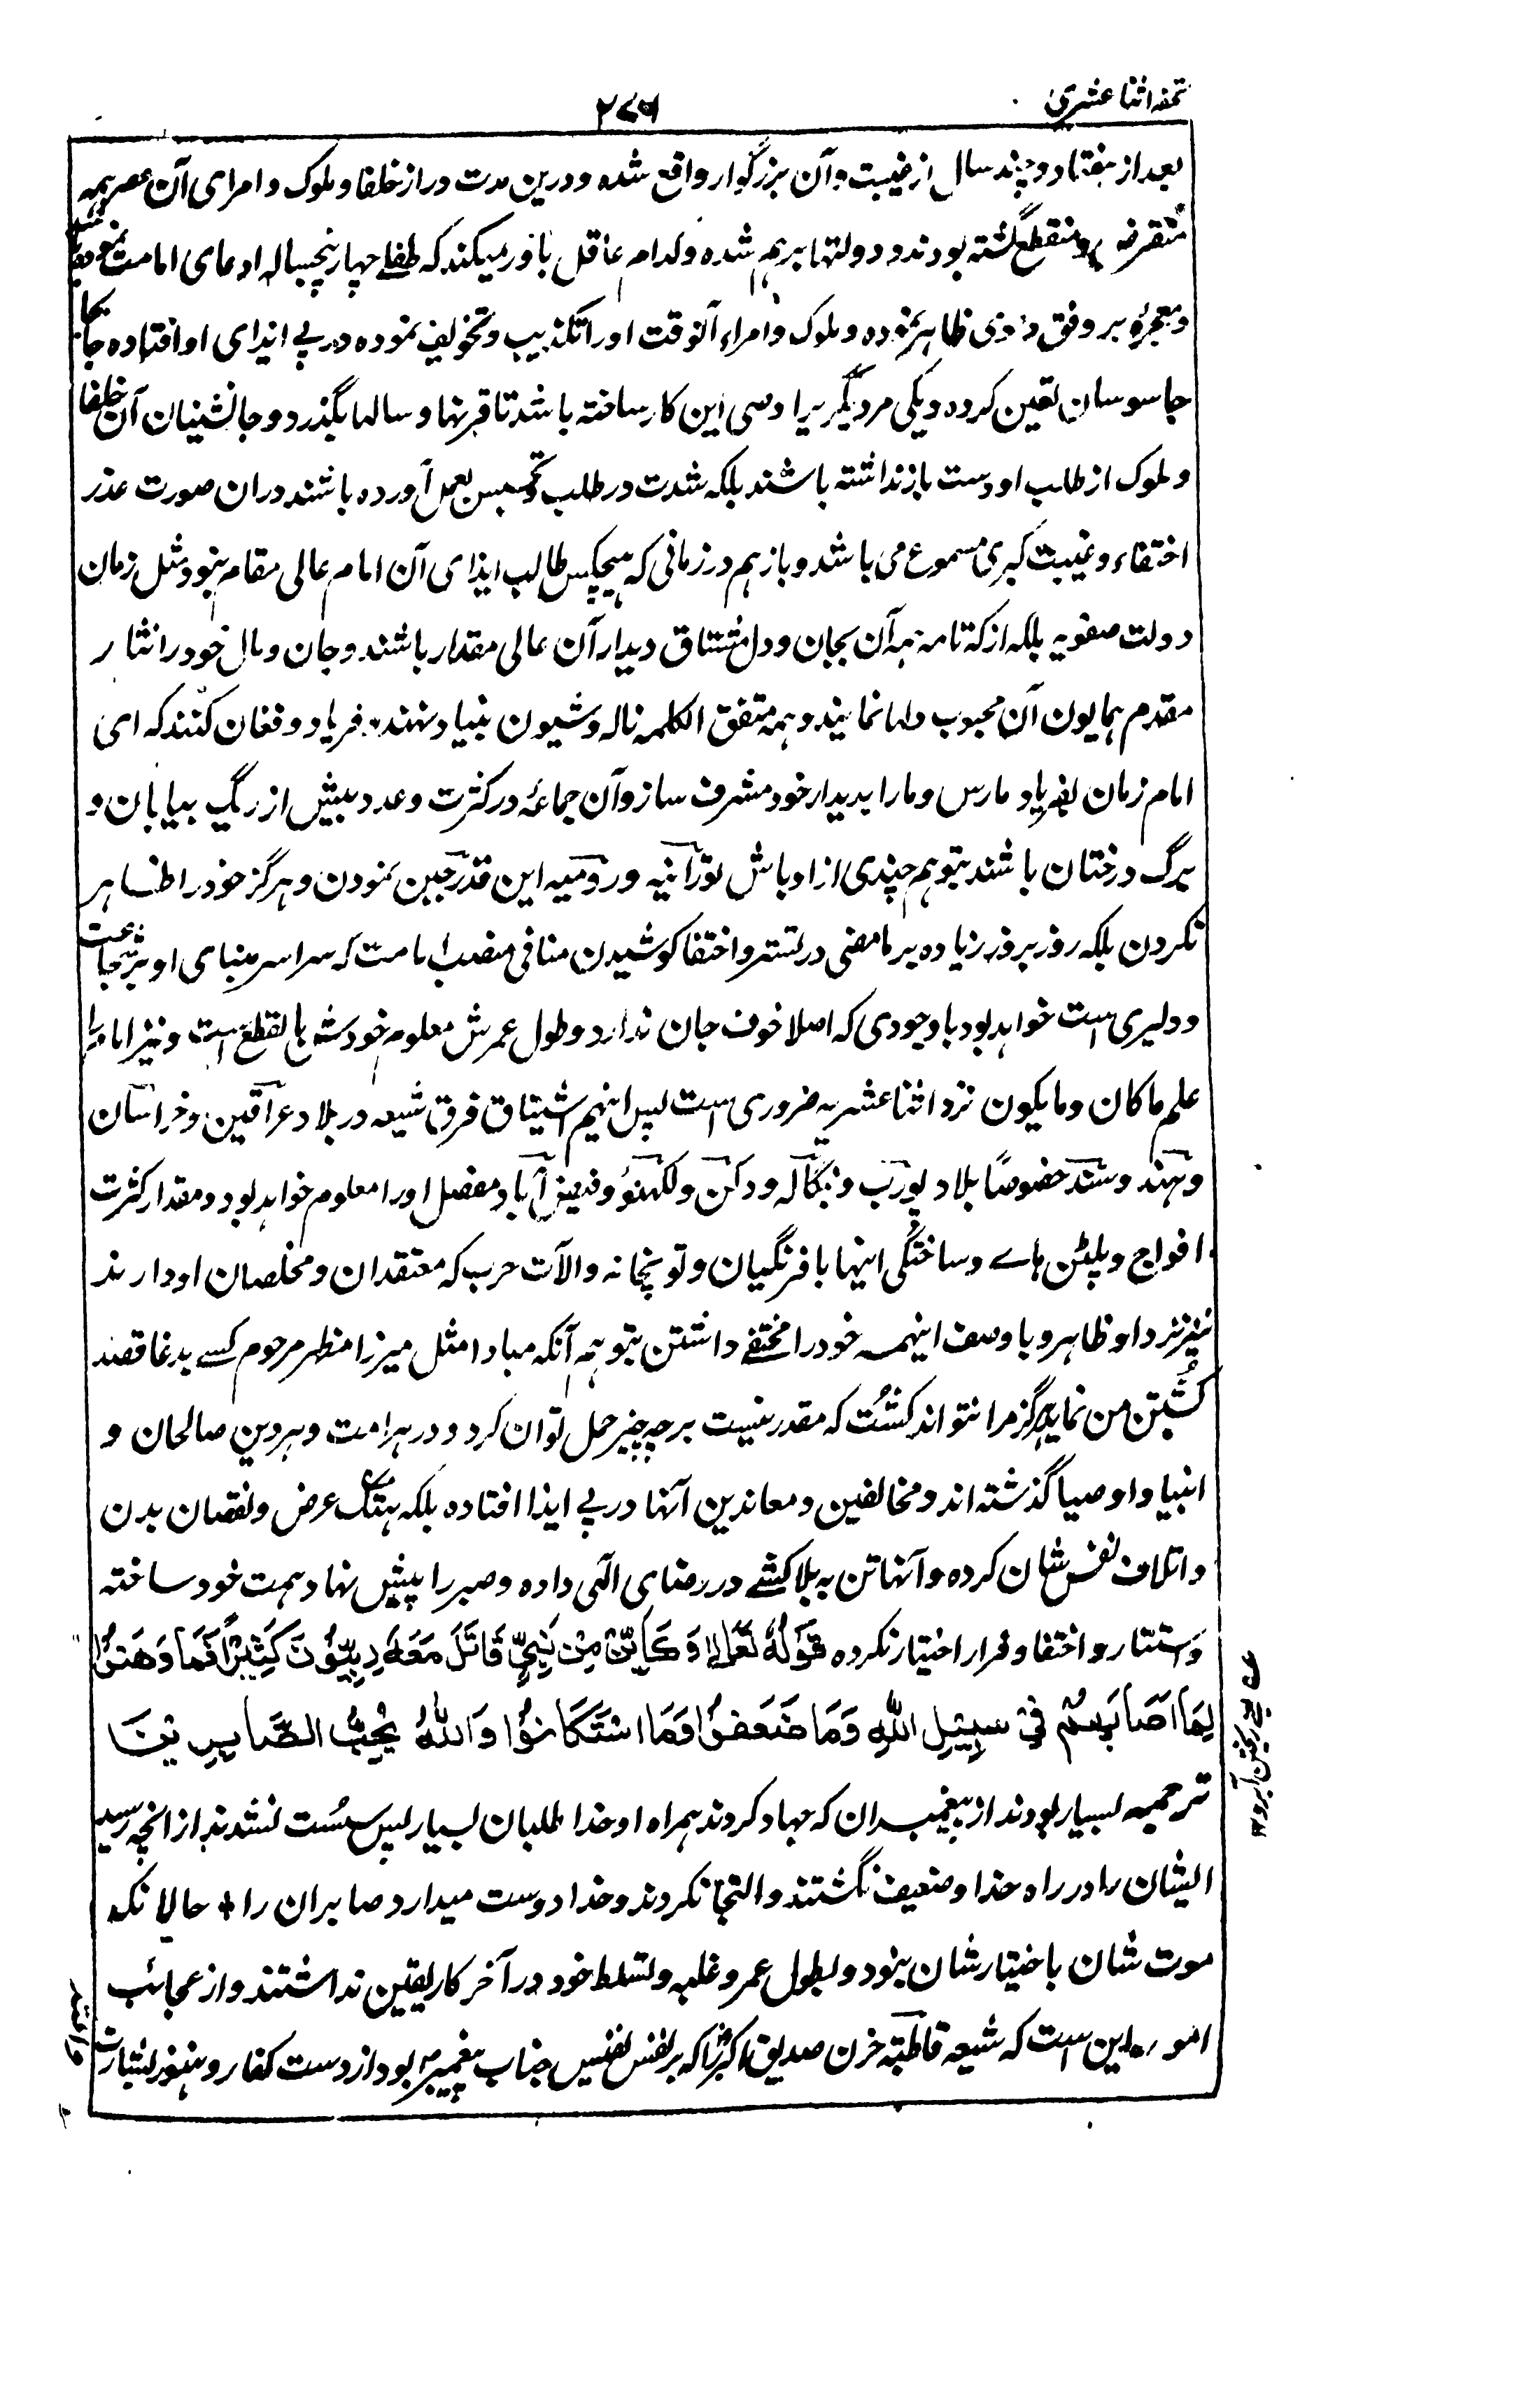 تحفه اثنا عشری
۲۷۶
بعد از هفتاد و چند سال از غیبت آن بزرگوار واقع شده و درین مدت دراز خلفا و ملوک و امرای آن عصر همه
منقرض و منقطع گشته بودند و دولتها برهم شده و کدام عاقل باور میکند که طفلے چهار پنجساله ادعای امامت
و معجزه بر وفق دعوی ظاهر نموده و ملوک و امراء آنوقت او را تکذیب و تخویف نموده در پے ایذای او افتاده جابجا
جاسوسان تعین کرده و یکی مر دیگریرا وصی این کار ساخته باشد تا قرنها و سالها بگذرد و جانشینان آن خلفا
و ملوک از طلب او دست باز نداشته باشند بلکه شدت در طلب و تجسس بعمل آورده باشند دران صورت عذر
اختفاء و غیبت کبری مسموع می باشد و باز هم در زمانی که هیچکس طالب ایذای آن امام عالی مقام نبود مثل زمان
دولت صفویه بلکه از که تا مه همه آن بجان و دل مشتاق دیدار آن عالی مقدار باشند و جان و مال خود را نثار
مقدم همایون آن محبوب دلها نمایند و همه متفق الکلمه ناله و شیون بنیاد نهند و فریاد و فغان کنند که ای
امام زمان بفریاد ما رس و ما را بدیدار خود مشرف ساز و آن جماعه در کثرت و عدد بیش از ریگ بیابان و
برگ درختان باشند بتوهم چندی از اوباش تورانیه و رومیه این قدر جبن نمودن و هرگز خود را ظاهر
نکردن بلکه روز بروز زیاده بر ما مضی در تستر و اختفا کوشیدن منافی منصب امامت که سراسر مبنای او بر شجاعت
و دلیری است خواهد بود با وجودی که اصلا خوف جان ندارد و طول عمرش معلوم خودش بالقطع است و نیز امام را
علم ما کان و ما یکون نزد اثنا عشریه ضروری است پس اینهم اشتیاق فرق شیعه در بلاد عراقین و خراسان
و هند و سند خصوصًا بلاد پورب و بنگاله و دکن و لکهنؤ و فیض آباد مفصل او را معلوم خواهد بود و مقدار کثرت
افواج و پلٹن هاے و ساختگی اینها با فرنگیان و توپخانه و الآت حرب که معتقدان و مخلصان او دارند
نیز نزد او ظاهر و با وصف اینهمه خود را مختفے داشتن بتوهم آنکه مبادا مثل میرزا مظهر مرحوم کسے بدغا قصد
کُشتن من نماید هرگز مرا نتواند کشت که مقدر نیست بر چه چیز حمل توان کرد و در هر امت و هر دین صالحان و
انبیا و اوصیا گذشته اند و مخالفین و معاندین آنها در پے ایذا افتاده بلکه هتک عرض و نقصان بدن
و اتلاف نفس شان کرده و آنها تن به بلاکشے در رضای الٰهی داده و صبر را پیش نهاد همت خود ساخته
و استتار و اختفا و فرار اختیار نکرده قَوْلُهُ تَعَالٰی وَكَاَيِّنْ مِنْ نَبِيٍّ قَاتَلَ مَعَهٗ رِبِّيُّوْنَ كَثِيْرًا فَمَا وَهَنُوْا
لِمَا اَصَابَهُمْ فِيْ سَبِيْلِ اللّٰهِ وَمَا ضَعُفُوْا وَمَا اسْتَكَانُوْا وَاللّٰهُ يُحِبُّ الصَّابِرِيْنَ
ترجمه بسیار بودند از پیغمبران که جهاد کردند همراه او خدا طلبان بسیار پس سُست نشدند از انچه رسید
ایشان را در راه خدا و ضعیف نگشتند و التجا نکردند و خدا دوست میدارد صابران را حالانکه
موت شان باختیار شان نبود و بطول عمر و غلبه و تسلط خود در آخر کار یقین نداشتند و از عجائب
امور این است که شیعه قاطبة حزن صدیق اکبرؓ را که بر نفس نفیس جناب پیغمبر بود از دست کفار و هنوز بشارت